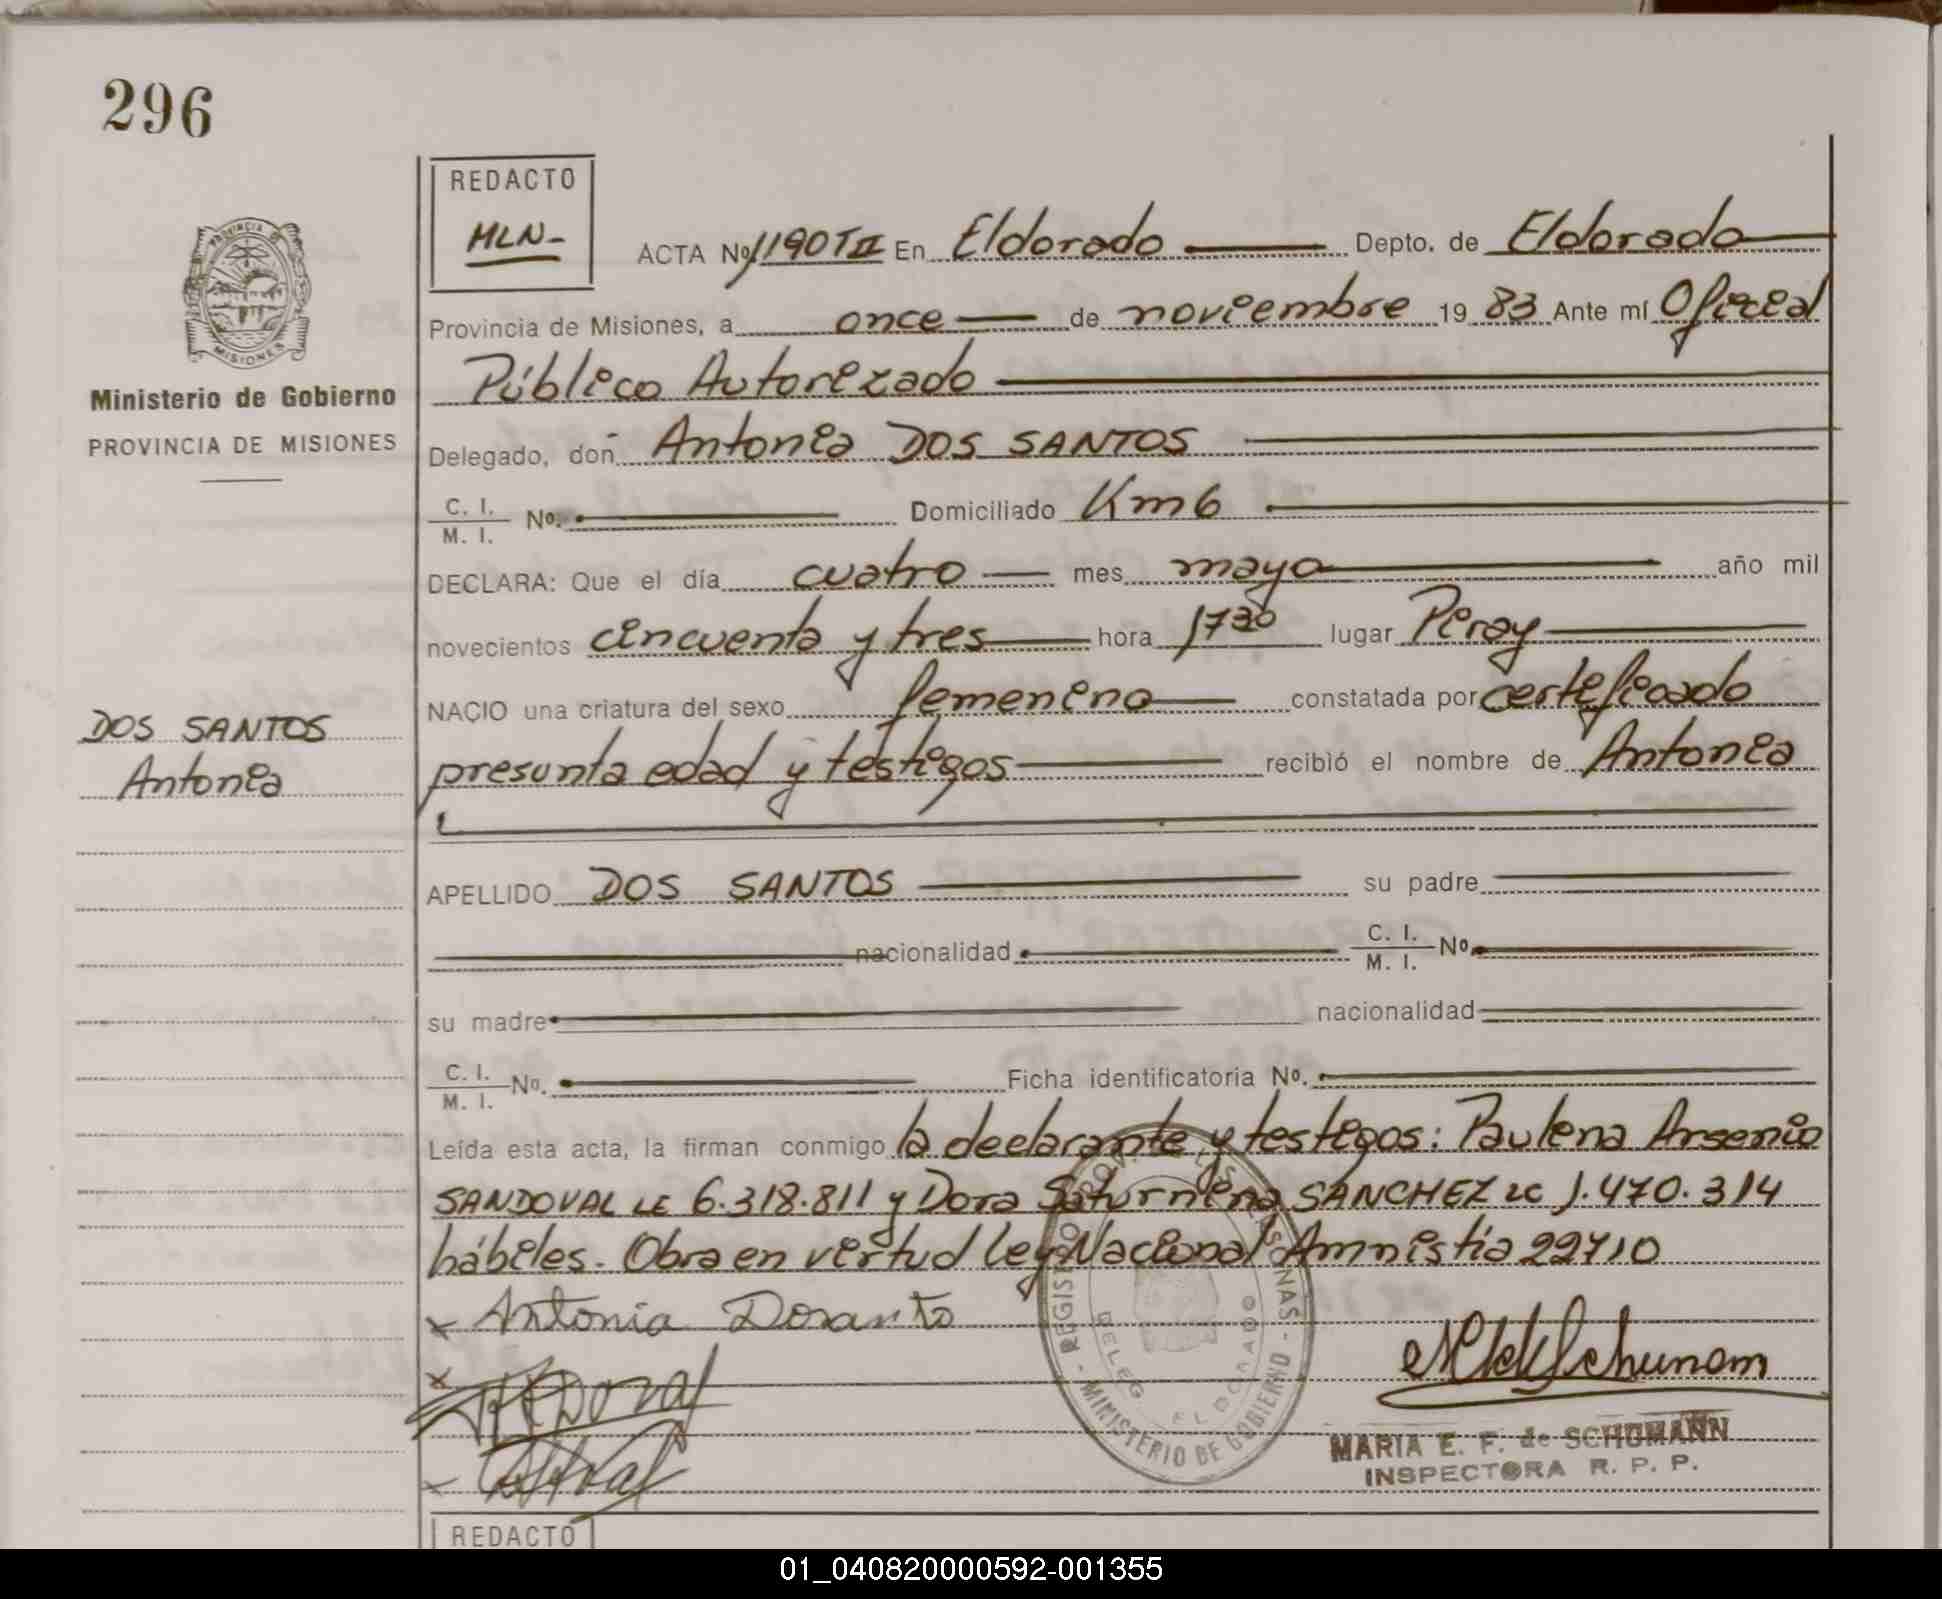 296
REDACTO
HLN-
ACTA Nº 1190 T II En Eldorado Depto. de Eldorado
Provincia de Misiones, a once de noviembre 1983 Ante mí Oficial
Público Autorizado
Ministerio de Gobierno
PROVINCIA DE MISIONES
Delegado, don Antonia DOS SANTOS
C. I.
M. I. Nº. Domiciliado Km 6
DECLARA: Que el día cuatro mes mayo año mil
novecientos cincuenta y tres hora 1730 lugar Piray
NACIO una criatura del sexo femenino constatada por certificado
DOS SANTOS
Antonia
presunta edad y testigos recibió el nombre de Antonia
APELLIDO DOS SANTOS su padre
nacionalidad C. I.
M. I. Nº
su madre nacionalidad
C. I.
M. I. Nº. Ficha identificatoria Nº.
Leída esta acta, la firman conmigo la declarante y testigos: Paulino Arsenio
SANDOVAL LE 6.318.811 y Dora Saturnina SANCHEZ LC 1.470.314
hábiles. Obra en virtud Ley Nacional Amnistía 22710
x Antonia Dosanto
x
x
REGISTRO PROV. DE LAS PERSONAS - MINISTERIO DE GOBIERNO -
DELEG. ELDORADO
MARIA E. F. de SCHUMANN
INSPECTORA R. P. P.
REDACTO
01_040820000592-001355